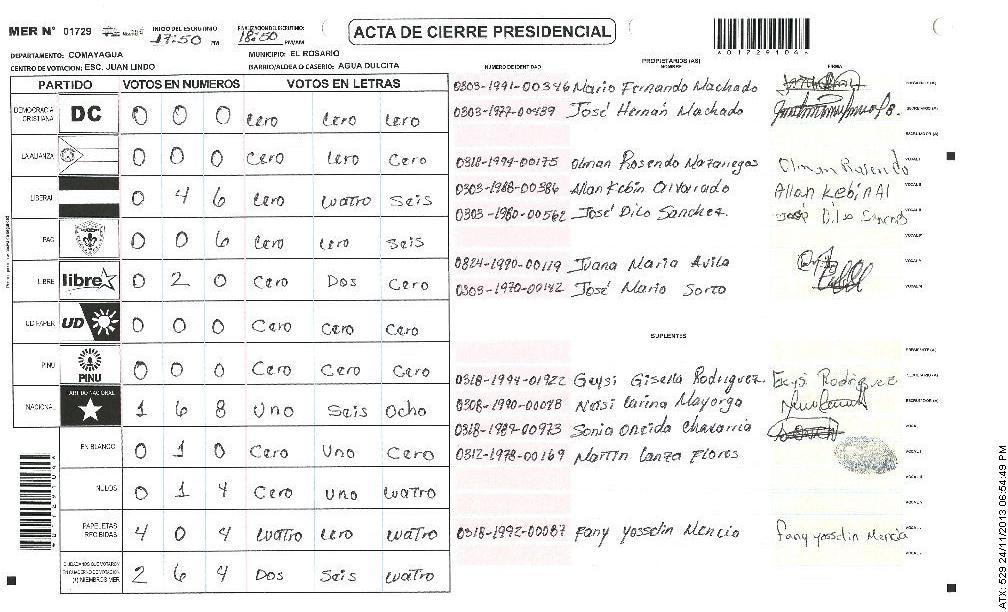 MER N° 01729 INICIO DEL ESCRUTINIO 17:50 PM FINALIZACION DEL ESCRUTINIO: 18:50 PM/AM
ACTA DE CIERRE PRESIDENCIAL
A01729106A
DEPARTAMENTO: COMAYAGUA MUNICIPIO: EL ROSARIO
CENTRO DE VOTACION: ESC. JUAN LINDO BARRIO/ALDEA O CASERIO: AGUA DULCITA
PARTIDO VOTOS EN NUMEROS VOTOS EN LETRAS
DEMOCRACIA CRISTIANA DC 0 0 0 Cero Cero Cero
LA ALIANZA 0 0 0 Cero Cero Cero
LIBERAL 0 4 6 Cero Cuatro Seis
PAC 0 0 6 Cero Cero Seis
LIBRE libre 0 2 0 Cero Dos Cero
UD FAPER UD 0 0 0 Cero Cero Cero
PINU PINU 0 0 0 Cero Cero Cero
NACIONAL 1 6 8 Uno Seis Ocho
EN BLANCO 0 1 0 Cero Uno Cero
NULOS 0 1 4 Cero Uno Cuatro
PAPELETAS RECIBIDAS 4 0 4 Cuatro Cero Cuatro
CIUDADANOS QUE VOTARON EN CUADERNO DE VOTACION (+) MIEMBROS MER 2 6 4 Dos Seis Cuatro
NUMERO DE IDENTIDAD PROPIETARIOS (AS) FIRMA
0303-1991-00346 Mario Fernando Machado
0303-1977-00439 José Hernán Machado
0318-1994-00175 Olman Rosendo Mazariegos Olman Rosendo
0303-1988-00386 Allan Kebin Alvarado Allan Kebin Al
0303-1980-00562 José Dilo Sanchez. José Dilo Sanchez
0824-1990-00119 Juana Maria Avila
0303-1970-00142 José Mario Sorto
SUPLENTES
0318-1994-01922 Geysi Gisella Rodriguez. Geysi Rodriguez
0308-1990-00078 Neisi Carina Mayorga
0318-1989-00973 Sonia Oneida Chavarria
0312-1978-00169 Martin Lanza Flores
0318-1992-00087 Fany Yosselin Mencia Fany Yosselin Mencia
ATX: 529 24/11/2013 06:54:49 PM